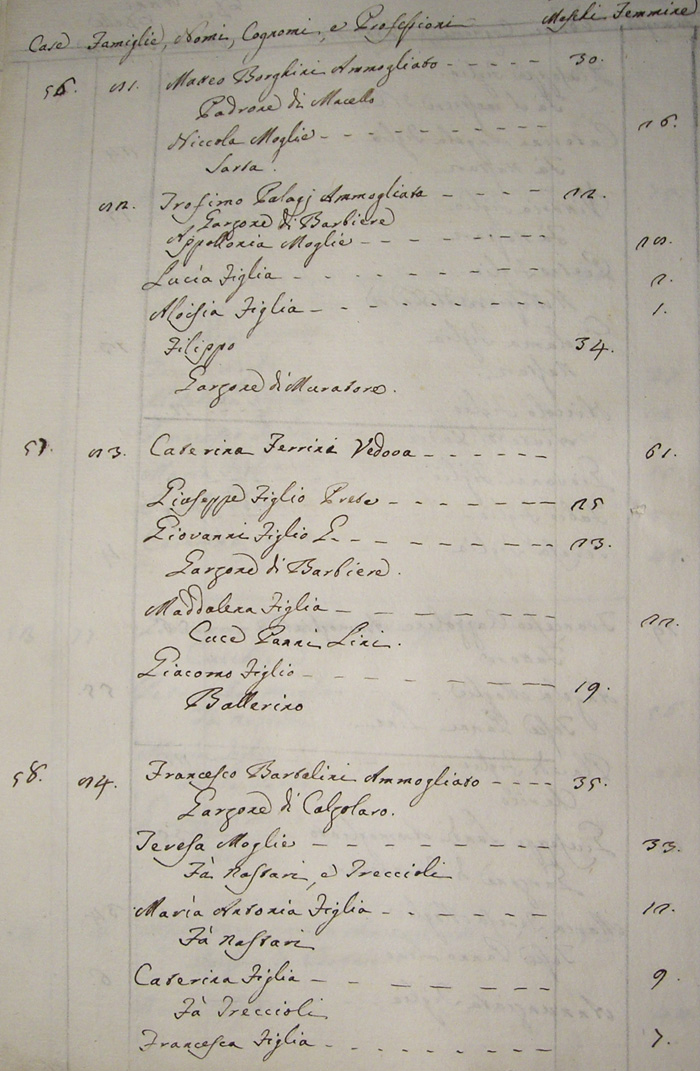 Case Famiglie, Nomi, Cognomi, e Professioni Maschi Femmine
56. Marco Borghini Ammogliato - - - - - 30.
Padrone di Macello
Niccola Moglie - - - - - - - - - 26.
Sarta.
Trofimo Palagj Ammogliato - - - - 22.
Garzone di Barbiere
Appollonia Moglie - - - - - - - -
Lucia Figlia - - - - - - - - 2.
Aloisia Figlia - - - - - - - - 1.
Filippo 34.
Garzone di Muratore.
57. Caterina Ferrini Vedova - - - - - - 61.
Giuseppe Figlio Prete - - - - - - - 25
Giovanni Figlio - - - - - - - - 23.
Garzone di Barbiere.
Maddalena Figlia - - - - - - - 22.
Cuce Panni Lini.
Giacomo Figlio - - - - - - - - 19.
Ballerino
58. Francesco Bartolini Ammogliato - - - - 35.
Garzone di Calzolaro.
Teresa Moglie - - - - - - - - 33.
Fà Nastari, e Treccioli
Maria Antonia Figlia - - - - - - 12.
Fà Nastari
Caterina Figlia - - - - - - - - 9.
Fà Treccioli
Francesca Figlia - - - - - - - 7.